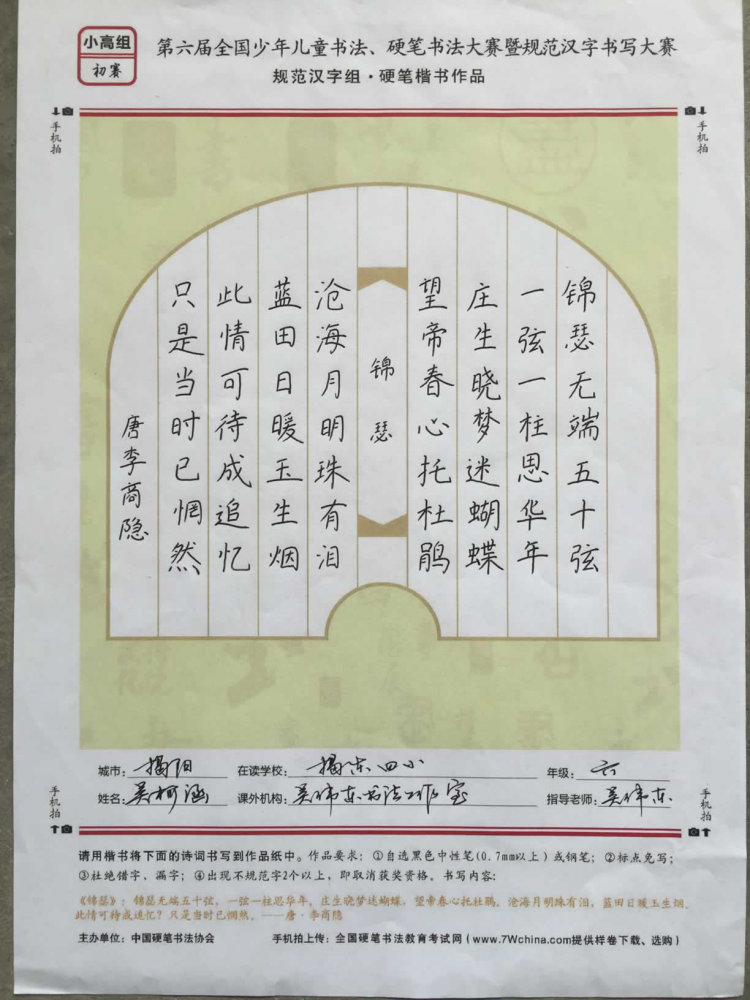 小高组
初赛
第六届全国少年儿童书法、硬笔书法大赛暨规范汉字书写大赛
规范汉字组·硬笔楷书作品
手机拍
手机拍
锦瑟无端五十弦
一弦一柱思华年
庄生晓梦迷蝴蝶
望帝春心托杜鹃
锦瑟
沧海月明珠有泪
蓝田日暖玉生烟
此情可待成追忆
只是当时已惘然
唐李商隐
城市：揭阳 在读学校：揭东四小 年级：六
姓名：吴柯涵 课外机构：吴伟东书法工作室 指导老师：吴伟东
手机拍
手机拍
请用楷书将下面的诗词书写到作品纸中。作品要求：①自选黑色中性笔(0.7mm以上)或钢笔；②标点免写；
③杜绝错字、漏字；④出现不规范字2个以上，即取消获奖资格。书写内容：
《锦瑟》：锦瑟无端五十弦，一弦一柱思华年。庄生晓梦迷蝴蝶，望帝春心托杜鹃。沧海月明珠有泪，蓝田日暖玉生烟。
此情可待成追忆？只是当时已惘然。——唐·李商隐
主办单位：中国硬笔书法协会 手机拍上传：全国硬笔书法教育考试网(www.7Wchina.com提供样卷下载、选购)